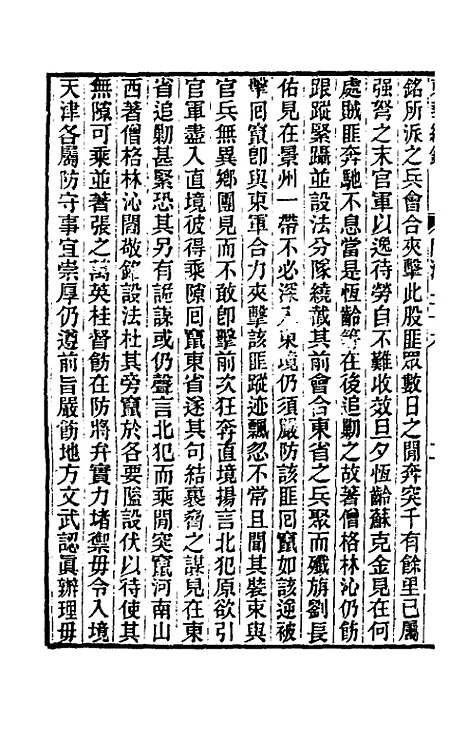 銘所派之兵會合夾擊此股匪眾數日之閒奔突千有餘里已屬
强弩之末官軍以逸待勞自不難收效旦夕恆齡蘇克金見在何
處賊匪奔馳不息當是恆齡等在後追勦之故著僧格林沁仍飭
跟蹤緊躡並設法分隊繞截其前會合東省之兵聚而殲旃劉長
佑見在景州一帶不必深入東境仍須嚴防該匪回竄如該逆被
擊回竄卽與東軍合力夾擊該匪蹤迹飄忽不常且聞其裝束與
官兵無異鄉團見而不敢卽擊前次狂奔直境揚言北犯原欲引
官軍盡入直境彼得乘隙回竄東省遂其句結裹脅之謀見在東
省追勦甚緊恐其另有詭謀或仍聲言北犯而乘閒突竄河南山
西著僧格林沁閻敬銘設法杜其旁竄於各要隘設伏以待使其
無隙可乘並著張之萬英桂督飭在防將弁實力堵禦毋令入境
天津各屬防守事宜崇厚仍遵前旨嚴飭地方文武認眞辦理毋